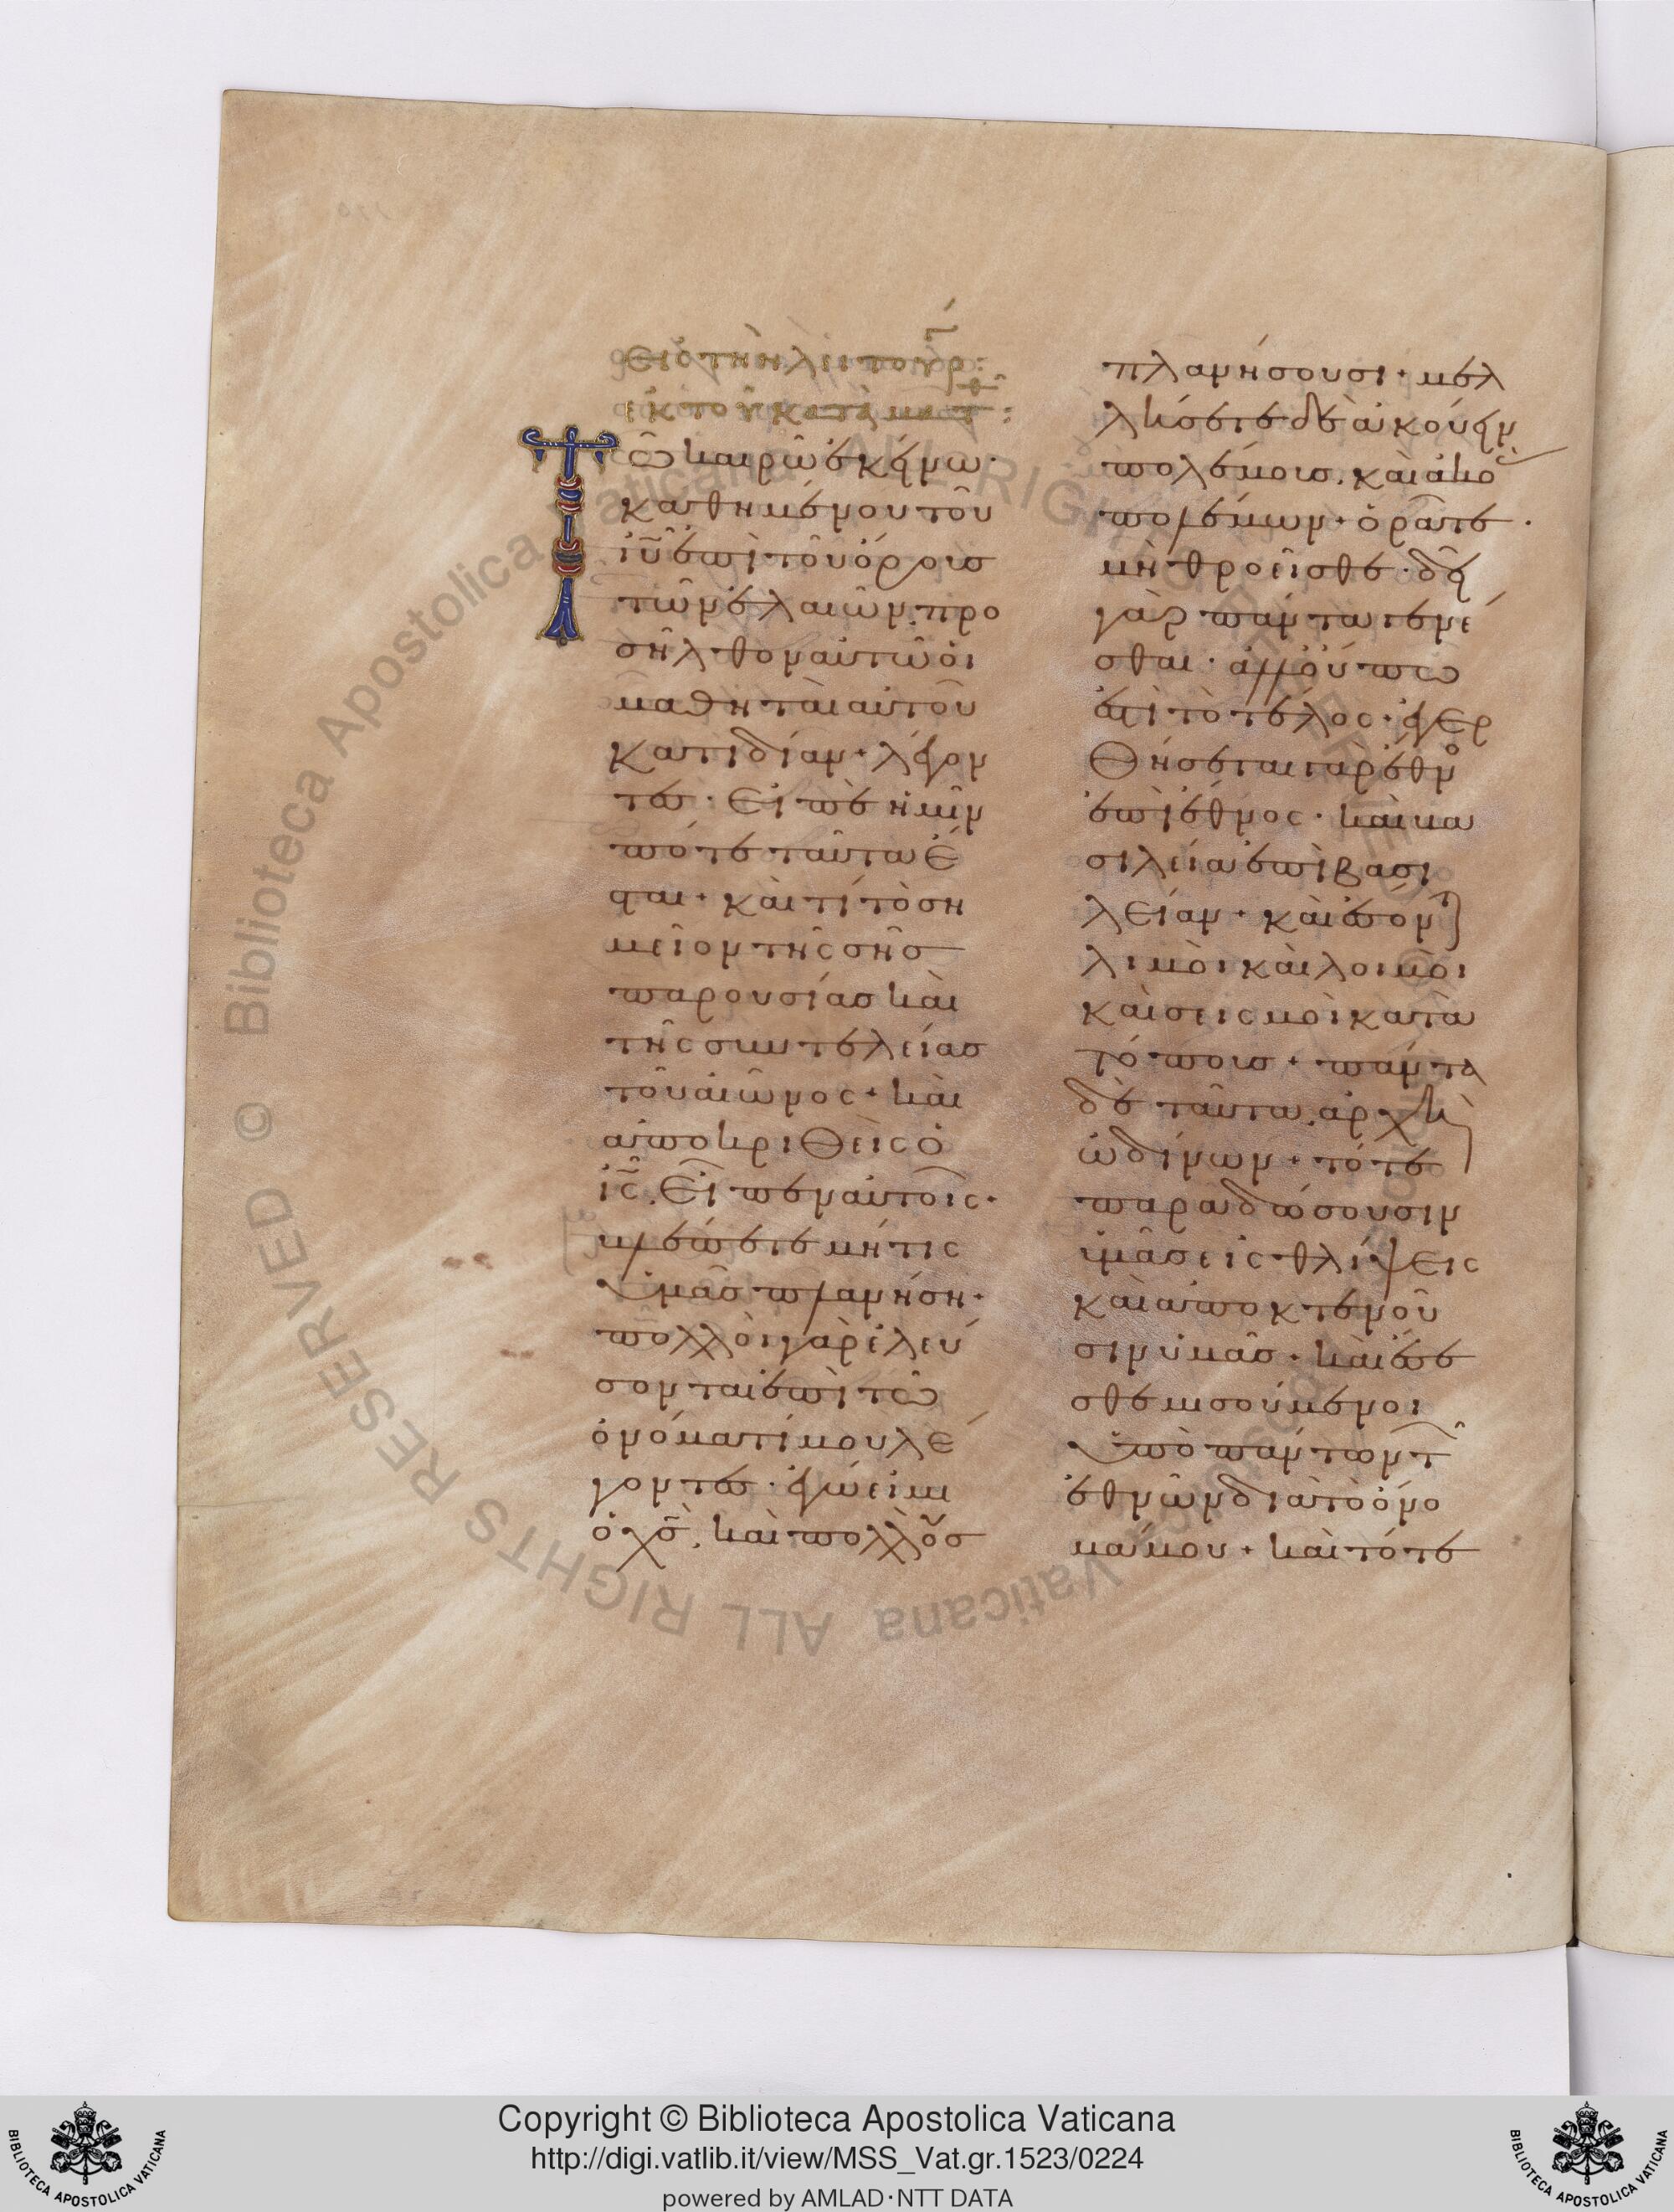 Εἰς τὴν λειτουρ:
ἐκ τοῦ κατὰ ματθ:
Τῶ καιρῶ ἐκείνω·
καθημένου τοῦ
ἰῦ ἐπὶ τοῦ ὄρους
τῶν ἐλαιῶν, προ
σῆλθον αὐτῶ οἱ
μαθηταὶ αὐτοῦ
κατιδίαν + λέγον
τες · Εἰπὲ ἡμῖν
πότε ταῦτα ἔ
σται + καὶ τί τὸ ση
μεῖον τῆς σῆς
παρουσίας καὶ
τῆς συντελείας
τοῦ αἰῶνος + καὶ
ἀποκριθεὶς ὁ
ἰς̄. Εἶπεν αὐτοῖς·
βλέπετε μήτις
ὑμᾶς πλανήση·
πολλοὶ γὰρ ἐλεύ
σονται ἐπὶ τῶ
ὀνόματί μου λέ
γοντες · ἐγώ εἰμι
ὁ χς̄, καὶ πολλοὺς
πλανήσουσι + μελ
λήσετε δὲ ἀκούειν
πολέμους, καὶ ἀκοὰς
πολέμων + ὁρᾶτε·
μὴ θροεῖσθε · δεῖ
γὰρ πάντα γενέ
σθαι · ἀλλ' οὔπω
ἐστὶ τὸ τέλος · ἐγερ
Θήσεται γὰρ ἔθνος
ἐπὶ ἔθνος · καὶ βα
σιλεία ἐπὶ βασι
λείαν + καὶ ἔσονται
λιμοὶ καὶ λοιμοὶ
καὶ σεισμοὶ κατὰ
τόπους + πάντα
δὲ ταῦτα, ἀρχὴ
ὠδίνων + τότε
παραδώσουσιν
ὑμᾶς εἰς θλίψεις
καὶ ἀποκτενοῦ
σιν ὑμᾶς + καὶ ἔσε
σθε μισούμενοι
ὑπὸ πάντων τῶν
ἐθνῶν διὰ τὸ ὄνο
μά μου + καὶ τότε
Copyright © Biblioteca Apostolica Vaticana
http://digi.vatlib.it/view/MSS_Vat.gr.1523/0224
powered by AMLAD·NTT DATA
BIBLIOTECA APOSTOLICA VATICANA
BIBLIOTECA APOSTOLICA VATICANA
© Biblioteca Apostolica Vaticana ALL RIGHTS RESERVED